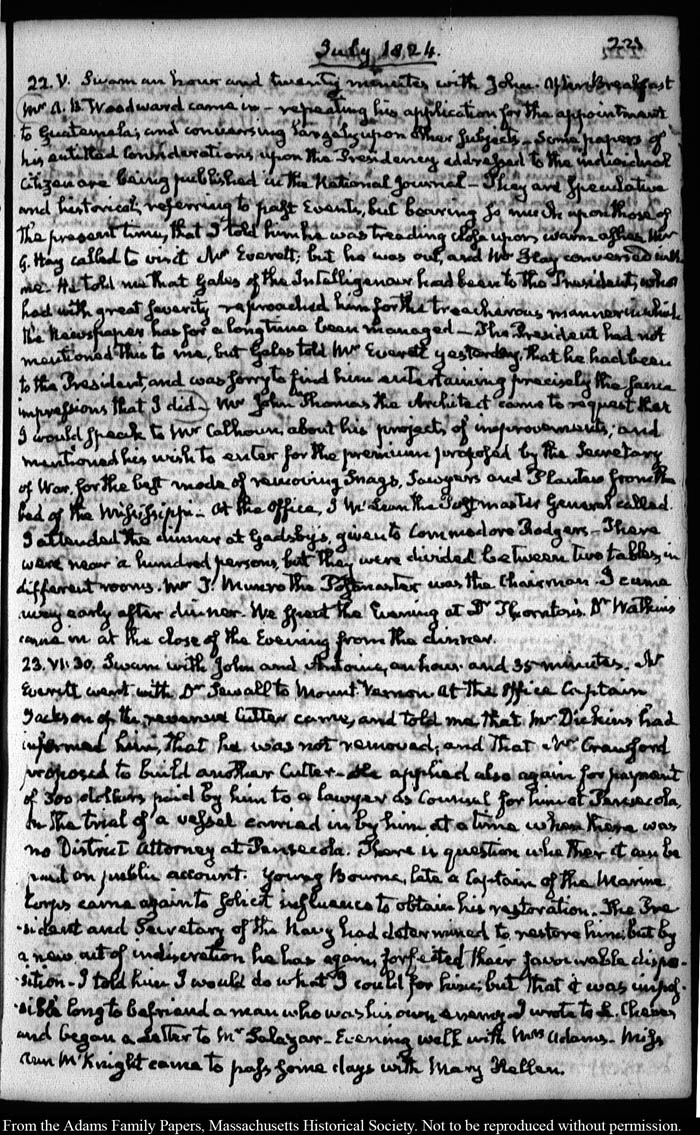 July 1824.
223
22. V. Swam an hour and twenty minutes with John. After Breakfast
Mr A. B. Woodward came in - repeating his application for the appointment
to Guatemala; and conversing largely upon other subjects - Some papers of
his entitled Considerations upon the Presidency addressed to the individual
Citizen are being published in the National Journal - They are speculative
and historical; referring to past Events, but bearing so much upon those of
the present time, that I told him he was treading close upon warm ashes. Mr
G. Hay called to visit Mr Everett; but he was out, and Mr Hay conversed with
me. He told me that Gales of the Intelligencer had been to the President, who
had with great severity reproached him for the treacherous manner in which
the Newspaper has for a long time been managed - The President had not
mentioned this to me, but Gales told Mr Everett yesterday, that he had been
to the President and was sorry to find him entertaining precisely the same
impressions that I did - Mr John Thomas the Architect came to request that
I would speak to Mr Calhoun, about his projects of improvements; and
mentioned his wish to enter for the premium proposed by the Secretary
of War, for the best mode of removing Snags, Sawyers and Planters from the
bed of the Mississippi - At the Office, J. McLean the Postmaster General called.
I attended the dinner at Gadsby's, given to Commodore Rodgers - There
were near a hundred persons, but they were divided between two tables, in
different rooms. Mr T. Munroe the Postmaster was the Chairman. I came
away early after dinner. We spent the Evening at Dr Thornton's. Dr Watkins
came in at the close of the Evening from the dinner.
23. VI:30. Swam with John and Antoine, an hour and 35 minutes. Mr
Everett went with Dr Sewall to Mount Vernon. At the Office Captain
Jackson of the revenue Cutter came, and told me that Mr Dickins had
informed him, that he was not removed; and that Mr Crawford
proposed to build another Cutter - He applied also again for payment
of 300 dollars paid by him to a lawyer as Counsel for him at Pensacola,
in the trial of a vessel carried in by him at a time when there was
no District Attorney at Pensacola. There is question whether it can be
paid on public account. Young Bourne, late a Captain of the Marine
Corps came again to solicit influence to obtain his restoration. The Pre
-sident and Secretary of the Navy had determined to restore him; but by
a new act of indiscretion he has again forfeited their favourable dispo-
-sition - I told him I would do what I could for him; but that it was impos-
-sible long to befriend a man who was his own enemy. I wrote to L. Cheves
and began a Letter to Mr Salazar - Evening well with Mrs Adams - Miss
Ann McKnight came to pass some days with Mary Hellen.
From the Adams Family Papers, Massachusetts Historical Society. Not to be reproduced without permission.